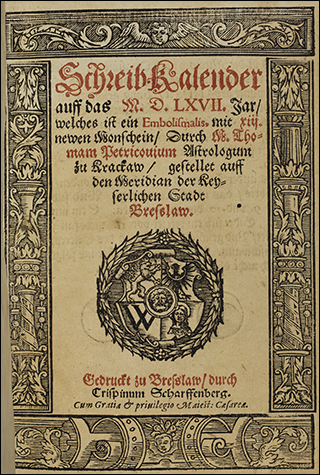 Schreib-Kalender
auff das M. D. LXVII. Jar/
welches ist ein Embolismalis, mit xiij.
newen Monschein/ Durch M. Tho-
mam Petricouium Astrologum
zu Krackaw/ gestellet auff
den Meridian der Key-
serlichen Stadt
Bresslaw.
W
Gedruckt zu Bresslaw/ durch
Crispinum Scharffenberg.
Cum Gratia & priuilegio Maiest: Caesareae.